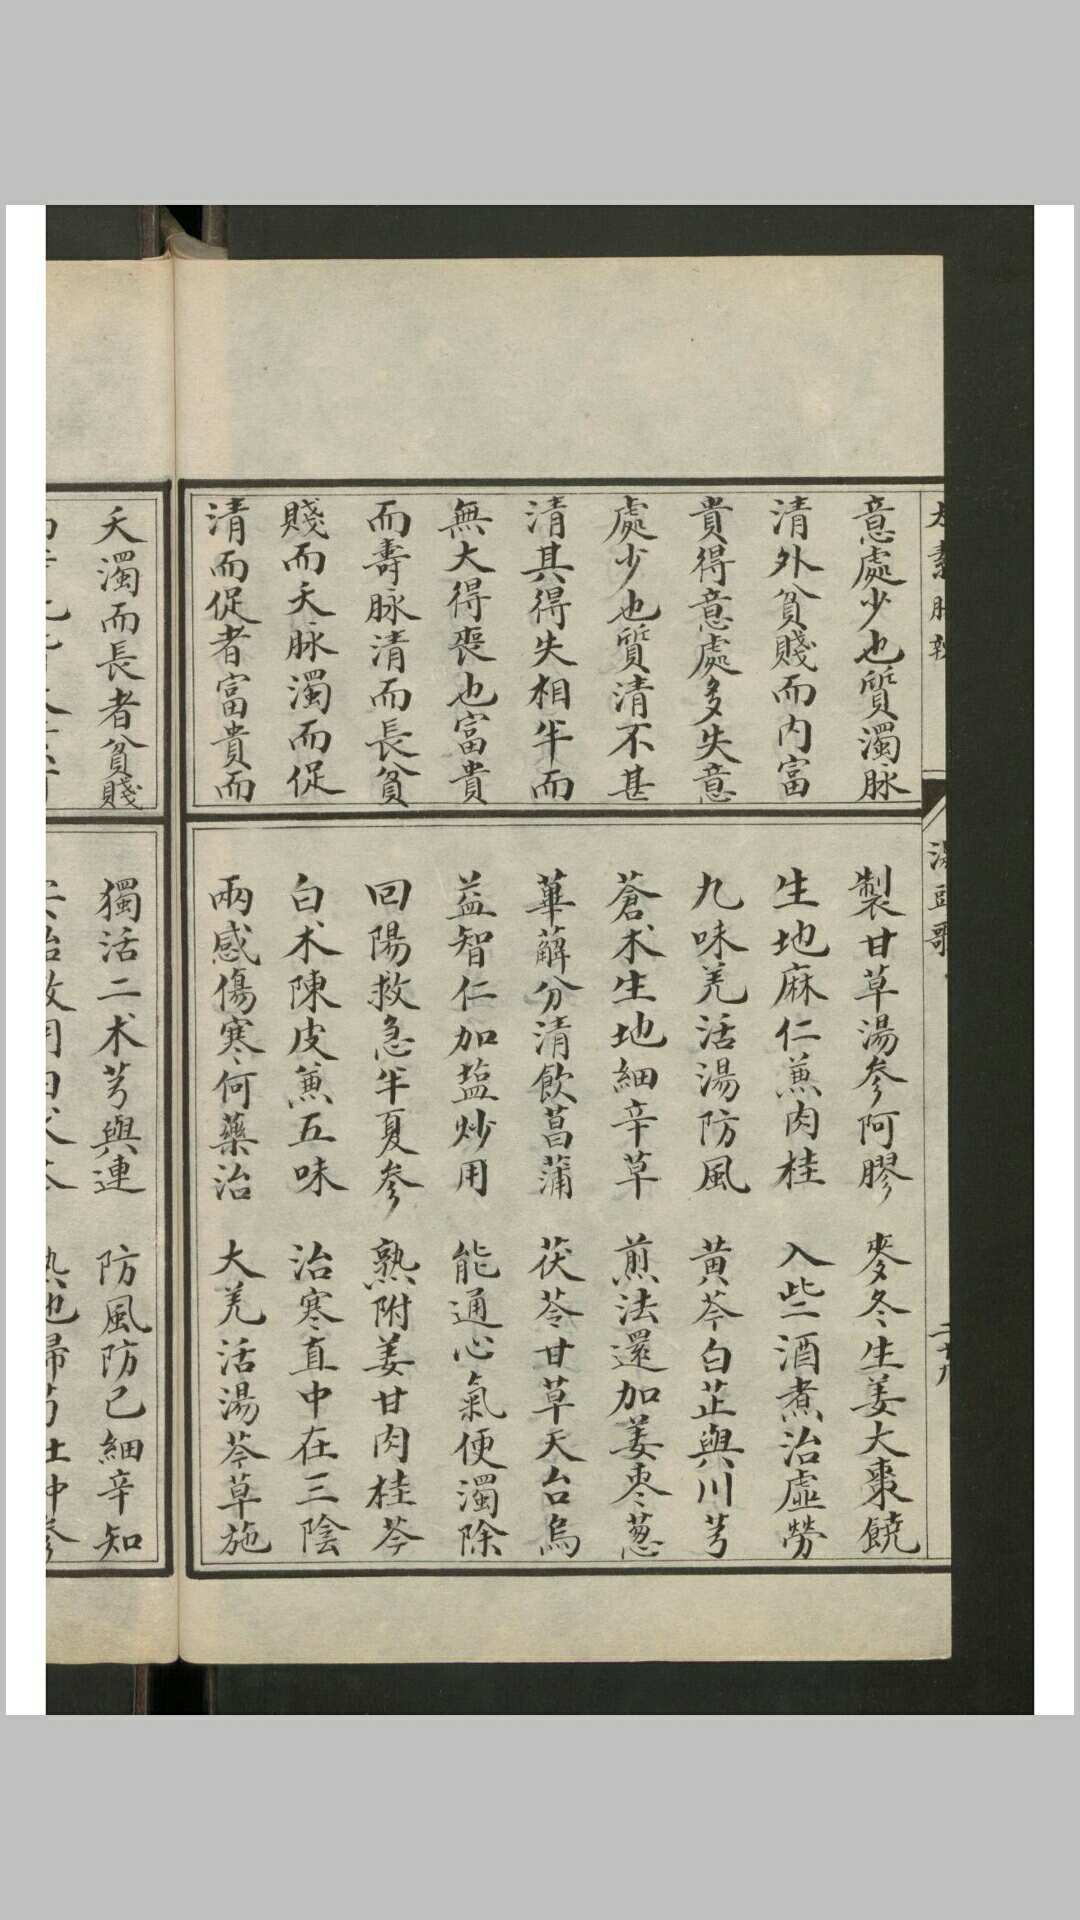 太素脉
湯頭歌
二十九
意處少也質濁脉
清外貧賤而内富
貴得意處多失意
處少也質清不甚
清其得失相半而
無大得喪也富貴
而壽脉清而長貧
賤而夭脉濁而促
清而促者富貴而
製甘草湯參阿膠 麥冬生姜大棗饒
生地麻仁蒹肉桂 入些酒煮治虛勞
九味羌活湯防風 黄芩白芷與川芎
蒼术生地細辛草 煎法還加姜枣葱
萆薢分清飲菖蒲 茯苓甘草天台烏
益智仁加塩炒用 能通心氣便濁除
回陽救急半夏參 熟附姜甘肉桂芩
白术陳皮蒹五味 治寒直中在三陰
兩感傷寒何藥治 大羌活湯芩草施
夭濁而長者貧賤
獨活二术芎與連 防風防己細辛知